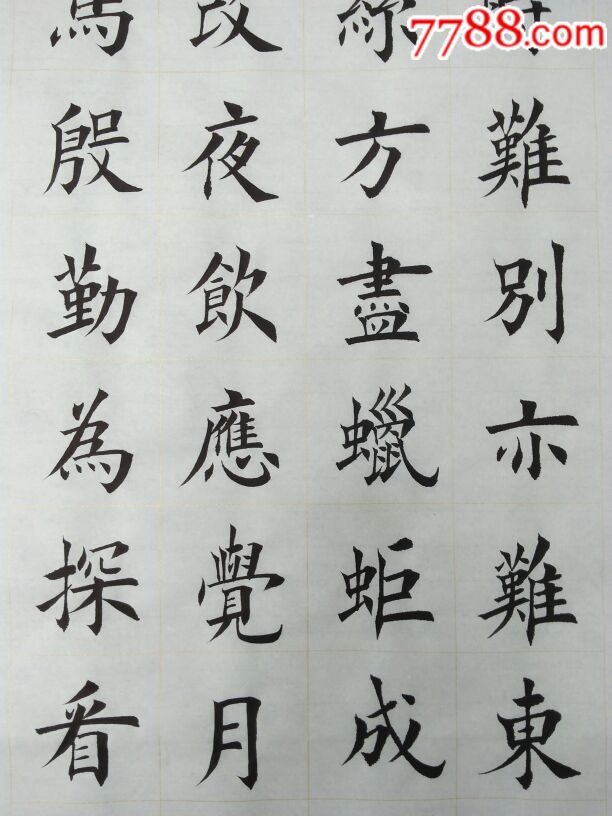 7788.com
難別亦難東
絲方盡蠟蚷成
改夜飲應覺月
鳥殷勤為探看